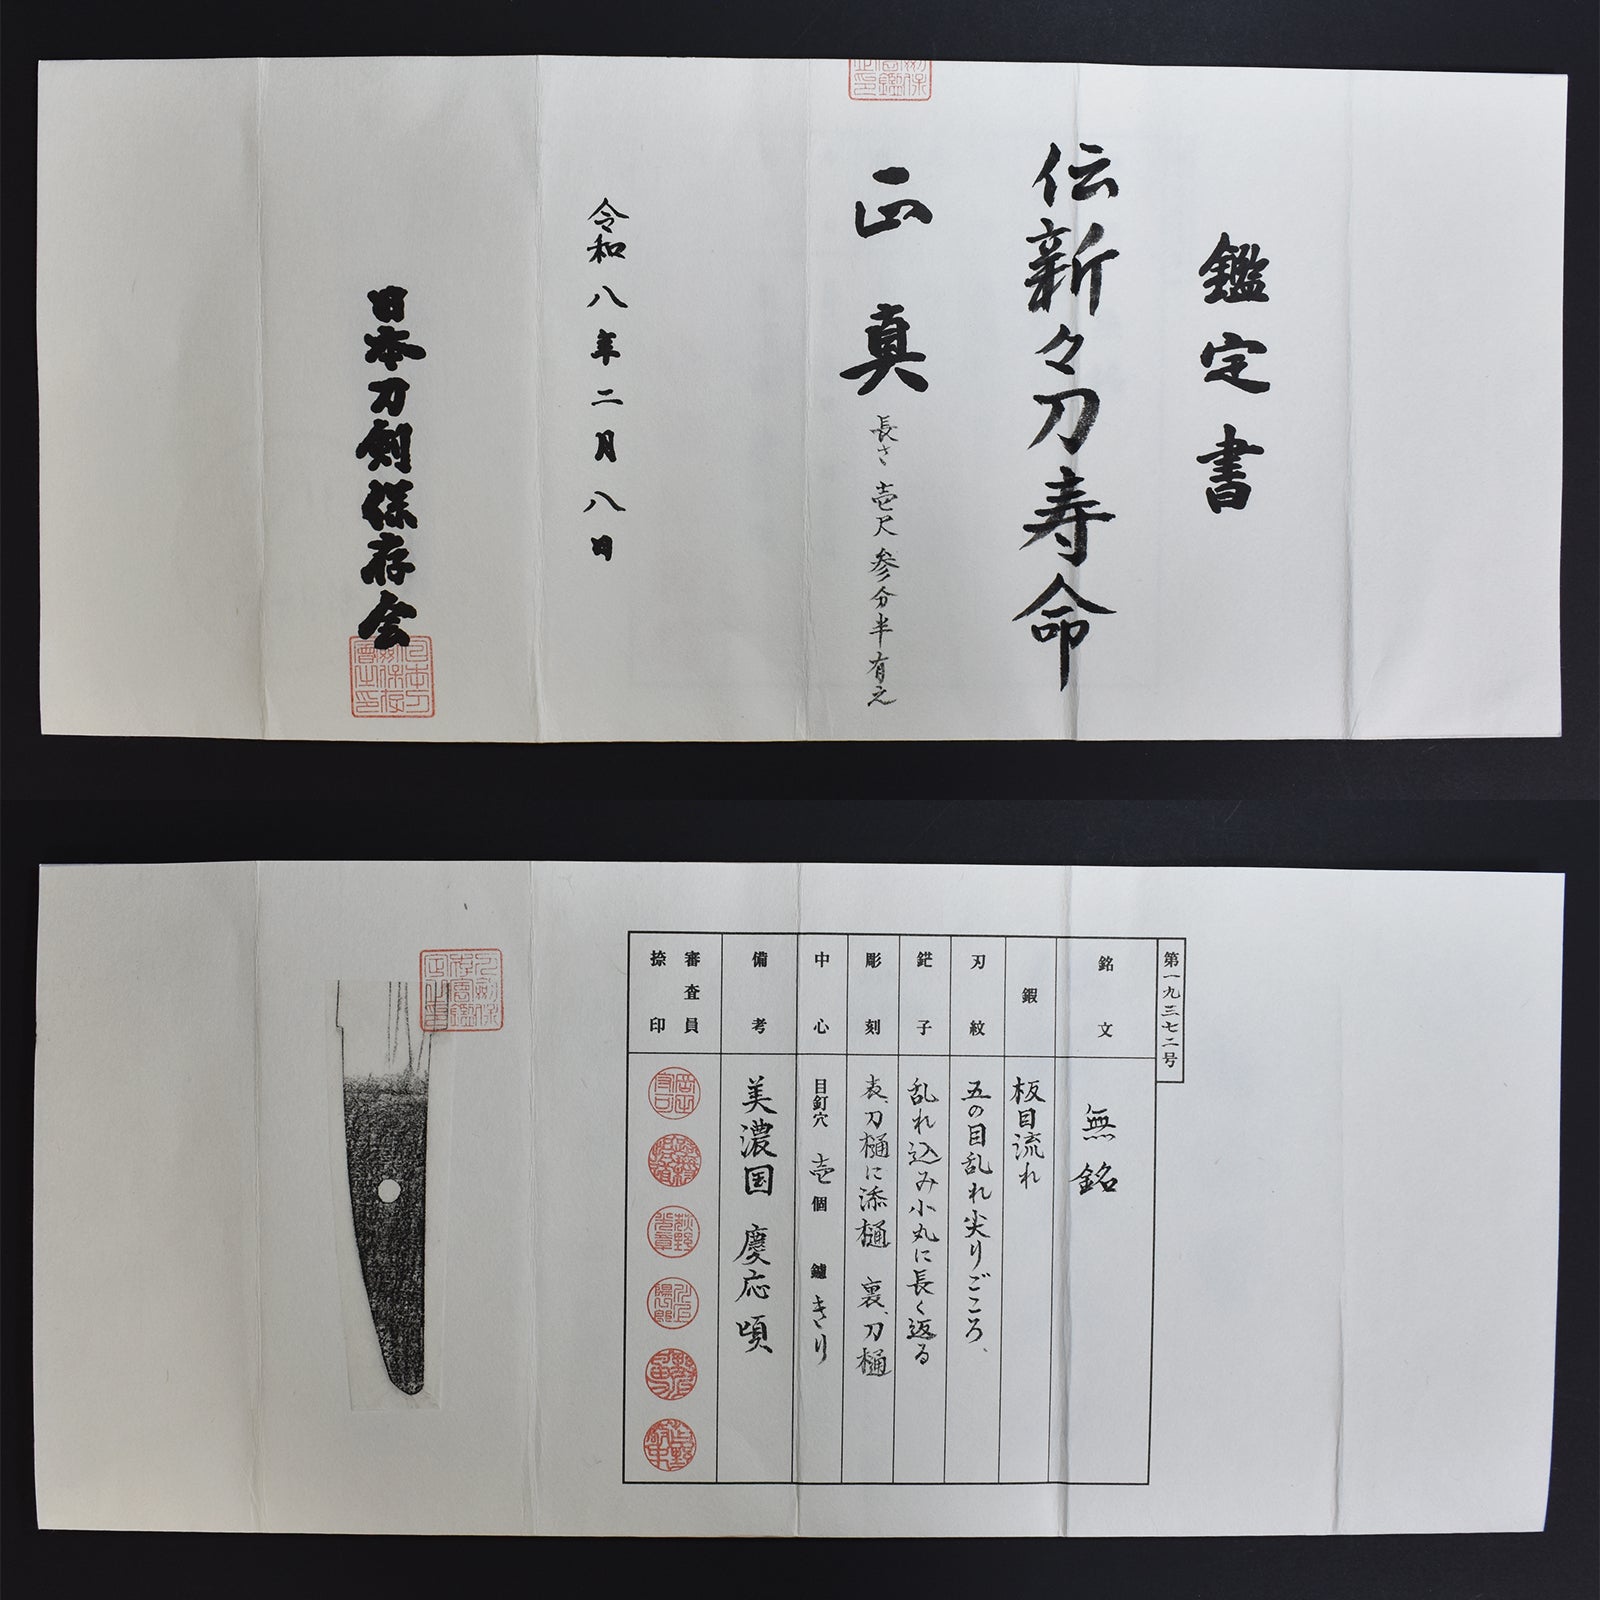 鑑定書
伝新々刀寿命
正真
長さ壱尺参分半有之
令和八年二月八日
日本刀剣保存会
第一九三七二号
銘文
無銘
鍜
板目流れ
刃紋
五の目乱れ尖りごころ、
鋩子
乱れ込み小丸に長く返る
彫刻
表、刀樋に添樋 裏、刀樋
中心
目釘穴 壱個 鑢 きり
備考
美濃国 慶応頃
審査員
捺印